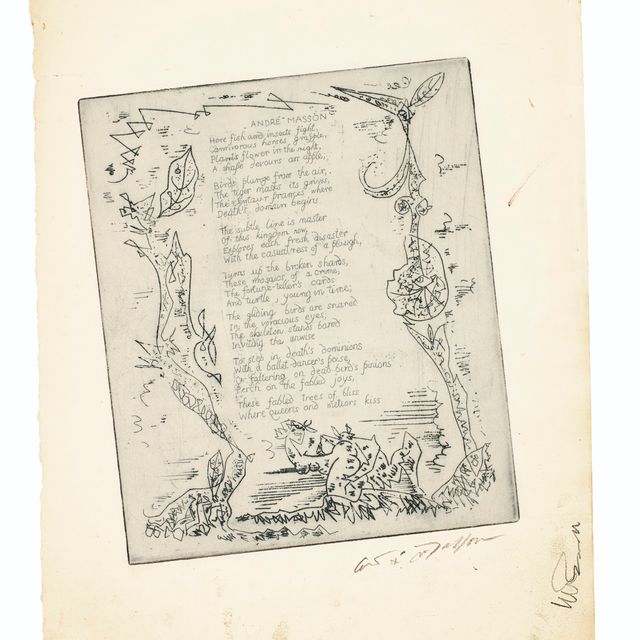 ANDRÉ MASSON
Here fish and insects fight,
Carnivorous horses grapple,
Plants flower in the night,
A shape devours an apple;
Birds plunge from the air,
The tiger masks its
The centaur prances where
Death's domain begins
The subtle line is master
Of this kingdom now,
Explores each fresh disaster
With the casualness of a plough,
Turns up the broken shards,
These mosaics of a crime,
The fortune-teller's cards
And turtle, young in time;
The gliding birds are snared
In the voracious eyes;
The skeleton stands bared
Inviting the unwise
To step in death's dominions
With a ballet-dancer's poise,
Or faltering on dead bird's pinions
Perch on the fabled joys,
These fabled trees of bliss
Where queens and meteors kiss